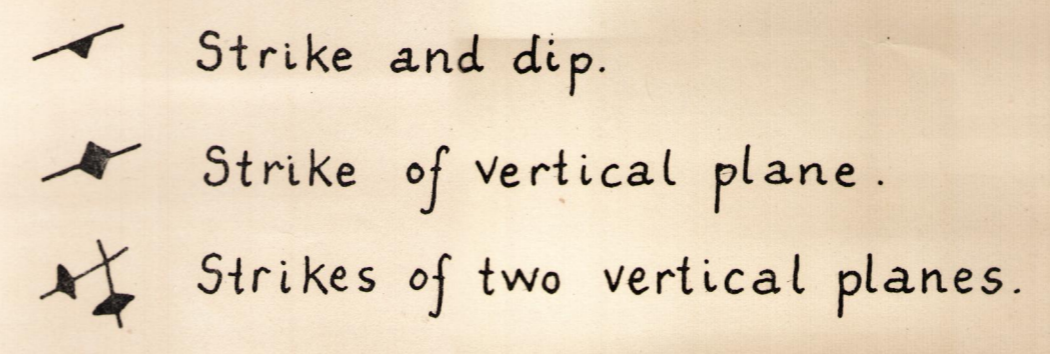 Strike and dip.
Strike of vertical plane.
Strikes of two vertical planes.